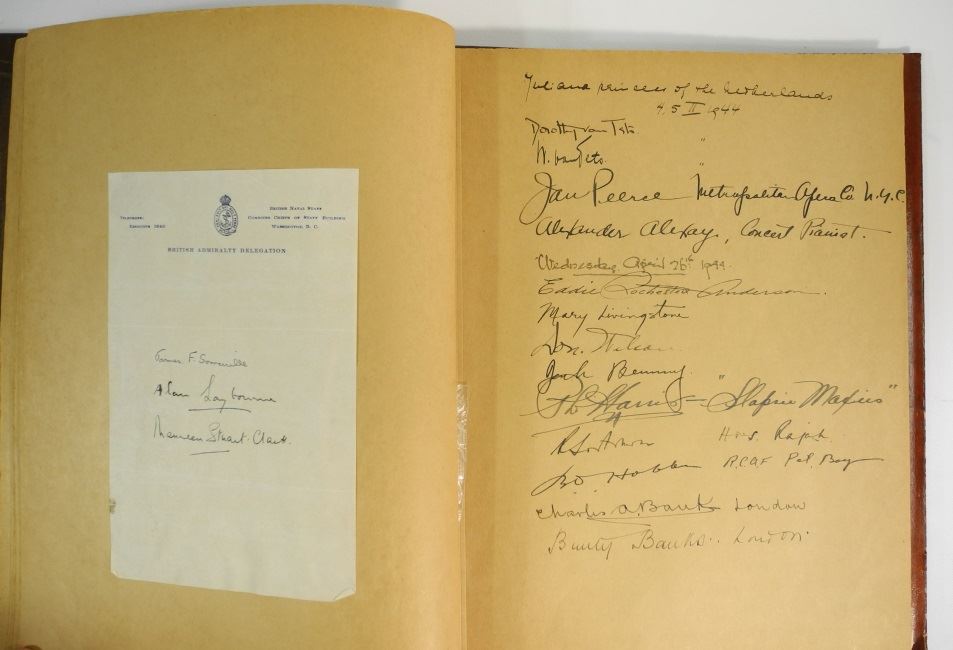 TELEPHONE:
EXECUTIVE 2840
BRITISH NAVAL STAFF
COMBINED CHIEFS OF STAFF BUILDING
WASHINGTON, D. C.
BRITISH ADMIRALTY DELEGATION
James F. Somerville
Alan Laybourne
Maureen Stuart-Clark.
Juliana princess of the Netherlands
4, 5 II 1944
Dorothy van Tets. "
W. van Tets. "
Jan Peerce Metropolitan Opera Co N.Y.C.
Alexander Alexay, Concert Pianist.
Wednesday, April 26th 1944.
Eddie Rochester Anderson.
Mary Livingstone
Don. Wilson
Jack Benny.
Phil Harris = "Slapsie Maxies"
R.C.A.F Pat. Bay
Charles A. Banks London
Bunty Banks.. London.